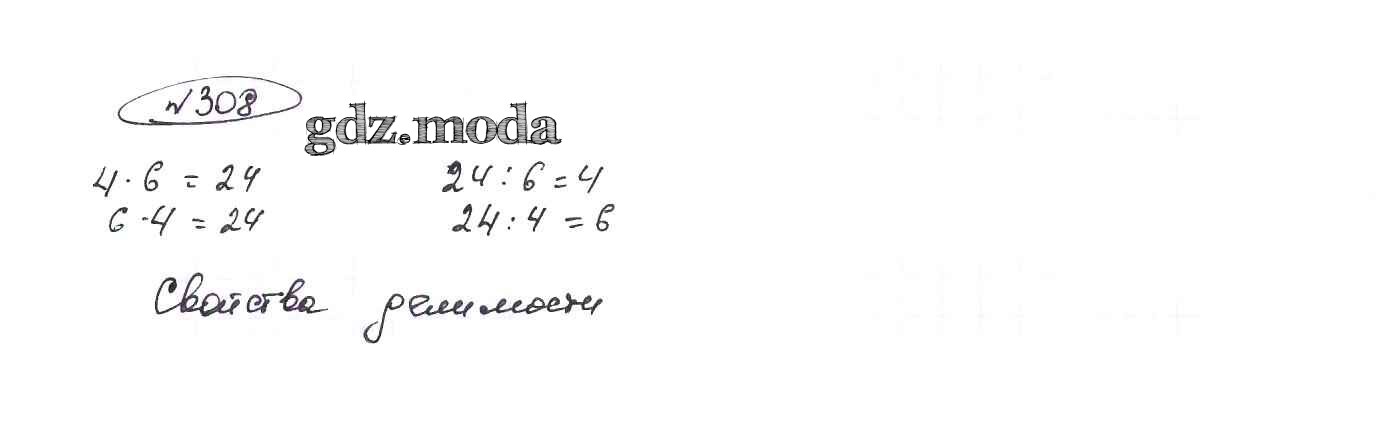 № 308
gdz.moda
4 · 6 = 24 24 : 6 = 4
6 · 4 = 24 24 : 4 = 6
Свойства делимости